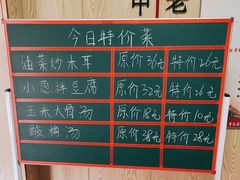 中 老
今日特价菜
油菜炒木耳 原价36元 特价26元
小葱拌豆腐 原价32元 特价26元
玉米大骨汤 原价18元 特价10元
酸梅汤 原价38元 特价28元